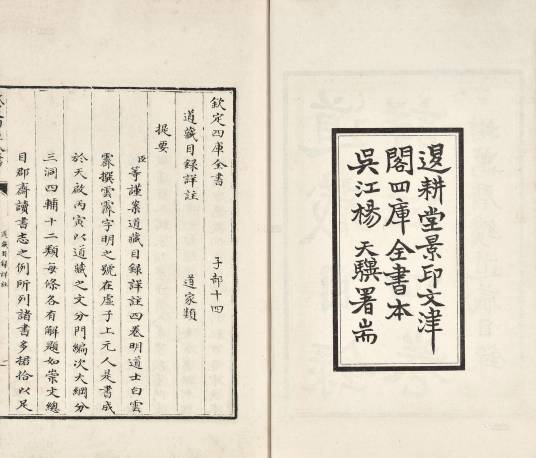 退耕堂景印文津
閣四庫全書本
吳江楊天驥署耑
欽定四庫全書 子部十四
道藏目録詳註 道家類
提要
臣等謹案道藏目録詳註四卷明道士白雲
霽撰雲霽字明之號在虛子上元人是書成
於天啟丙寅以道藏之文分門編次大綱分
三洞四輔十二類每條各有解題如崇文總
目郡齋讀書志之例所列諸書多捃拾以足
道藏目録詳註
一